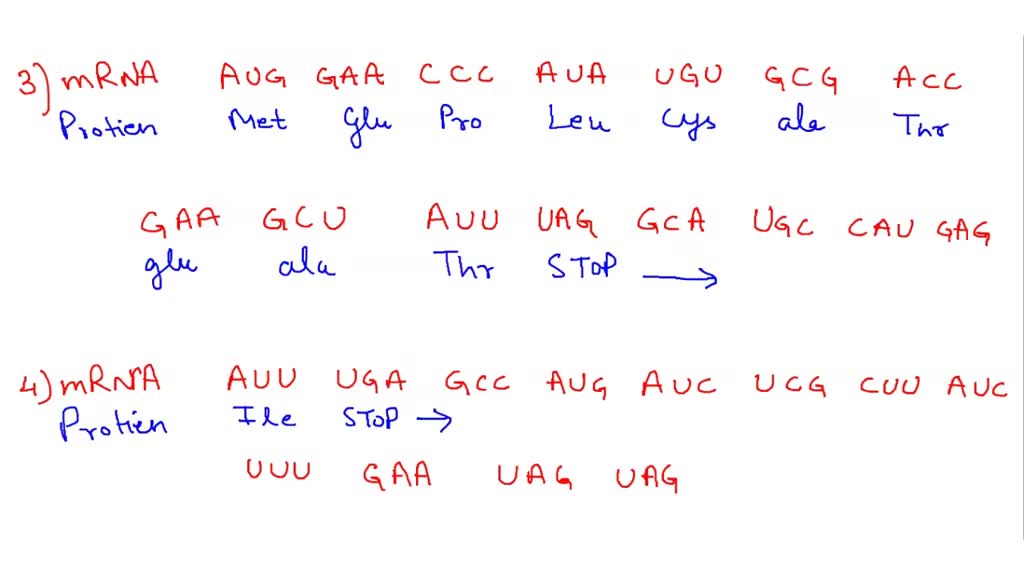 3) mRNA AUG GAA CCC AUA UGU GCG ACC
Protien Met Glu Pro Leu Cys ala Thr
GAA GCU AUU UAG GCA UGC CAU GAG
glu ala Thr STOP →
4) mRNA AUU UGA GCC AUG AUC UCG CUU AUC
Protien Ile STOP →
UUU GAA UAG UAG